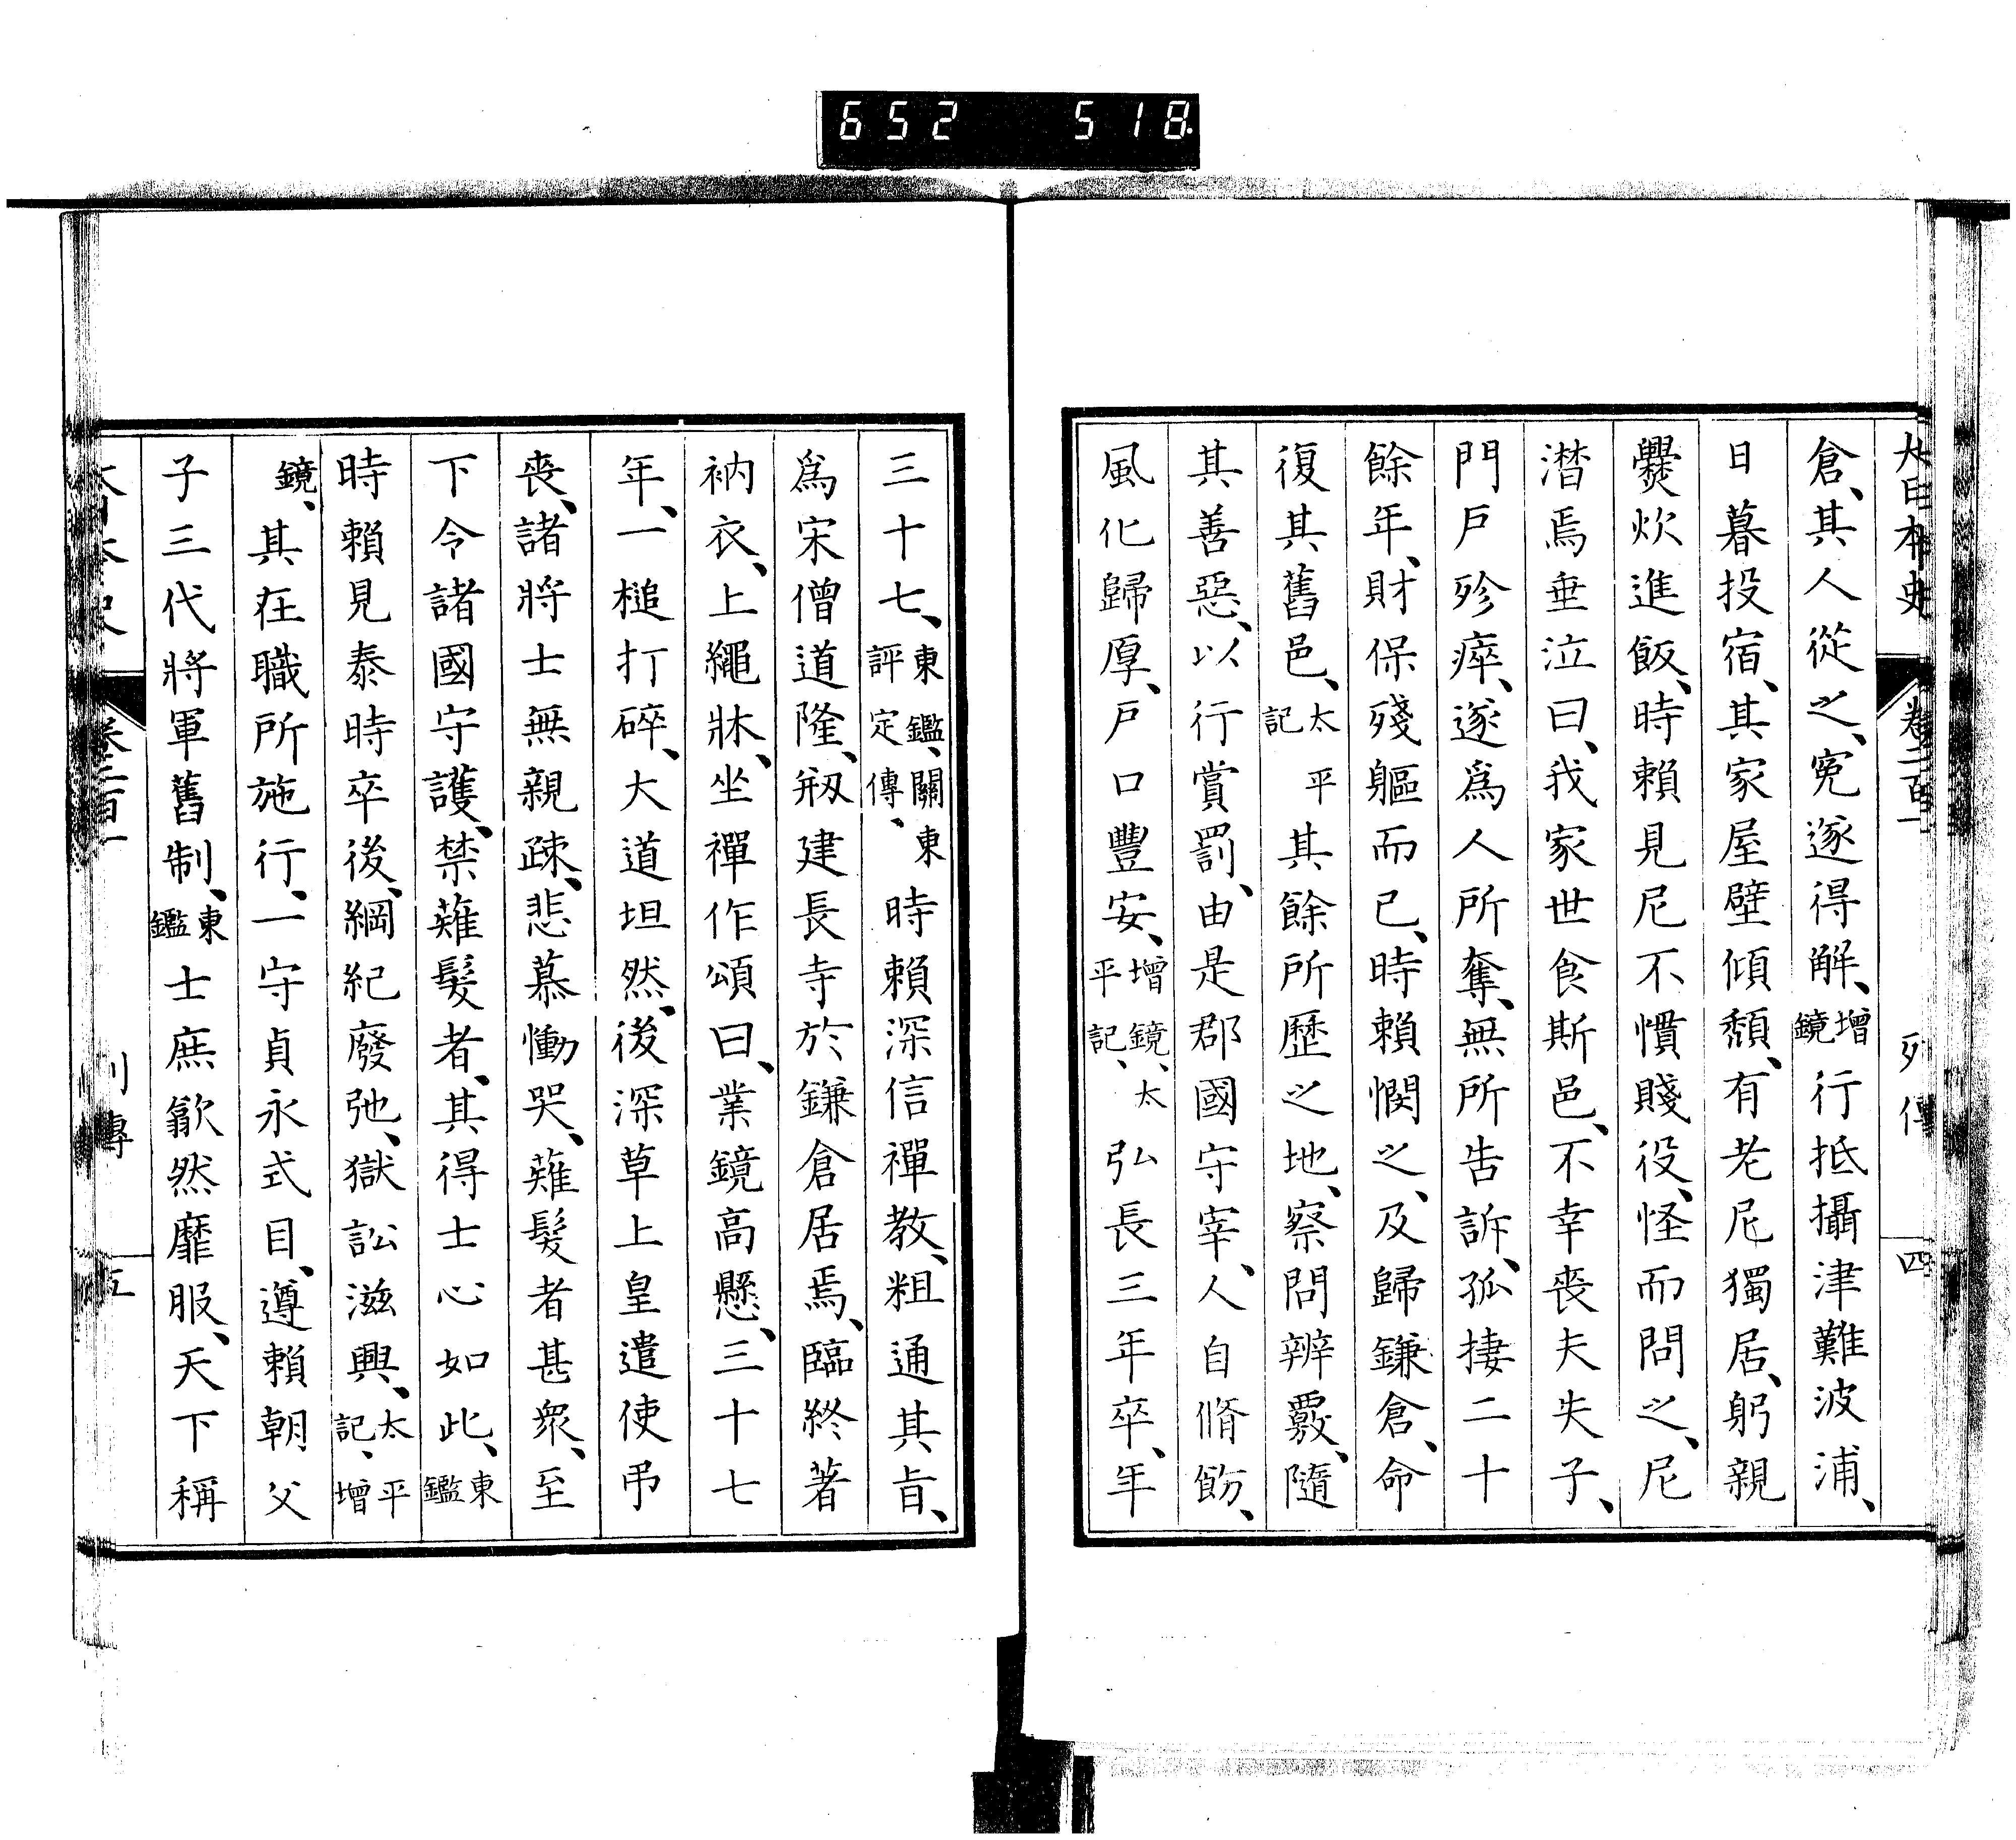 652 518
大日本史 卷二百一 列傳 四
倉、其人從之、冤遂得解、增鏡行抵攝津難波浦、
日暮投宿、其家屋壁傾頹、有老尼獨居、躬親
爨炊進飯、時賴見尼不慣賤役、怪而問之、尼
潸焉垂泣曰、我家世食斯邑、不幸喪夫失子、
門戶殄瘁、遂爲人所奪、無所告訴、孤捿二十
餘年、財保殘軀而已、時賴憫之、及歸鎌倉、命
復其舊邑、太平記其餘所歷之地、察問辨覈、隨
其善惡、以行賞罰、由是郡國守宰、人自脩飭、
風化歸厚、戶口豐安、增鏡、太平記、弘長三年卒、年
三十七、東鑑、關東評定傳、時賴深信禪教、粗通其旨、
爲宋僧道隆、剏建長寺於鎌倉居焉、臨終著
衲衣、上繩牀、坐禪作頌曰、業鏡高懸、三十七
年、一槌打碎、大道坦然、後深草上皇遣使弔
喪、諸將士無親疎、悲慕慟哭、薙髮者甚衆、至
下令諸國守護、禁薙髮者、其得士心如此、東鑑
時賴見泰時卒後、綱紀廢弛、獄訟滋興、太平記、增
鏡、其在職所施行、一守貞永式目、遵賴朝父
子三代將軍舊制、東鑑士庶歙然靡服、天下稱
大日本史 卷二百一 列傳 五